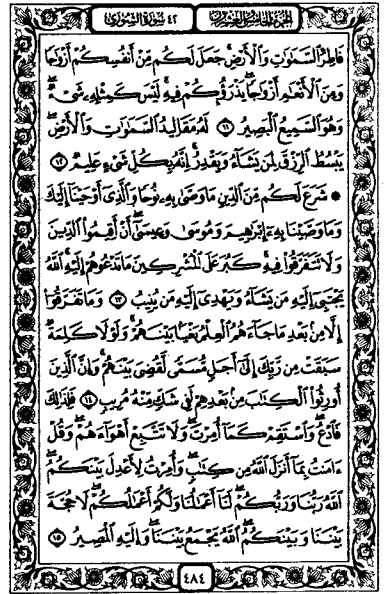 ٤٢ سورة الشورى
الجزء الخامس والعشرون
فَاطِرُ السَّمَٰوَٰتِ وَالْأَرْضِ جَعَلَ لَكُم مِّنْ أَنفُسِكُمْ أَزْوَٰجًا
وَمِنَ الْأَنْعَٰمِ أَزْوَٰجًا يَذْرَؤُكُمْ فِيهِ لَيْسَ كَمِثْلِهِ شَىْءٌ
وَهُوَ السَّمِيعُ الْبَصِيرُ ١١ لَهُ مَقَالِيدُ السَّمَٰوَٰتِ وَالْأَرْضِ
يَبْسُطُ الرِّزْقَ لِمَن يَشَآءُ وَيَقْدِرُ إِنَّهُ بِكُلِّ شَىْءٍ عَلِيمٌ ١٢
۞ شَرَعَ لَكُم مِّنَ الدِّينِ مَا وَصَّىٰ بِهِ نُوحًا وَالَّذِى أَوْحَيْنَا إِلَيْكَ
وَمَا وَصَّيْنَا بِهِ إِبْرَٰهِيمَ وَمُوسَىٰ وَعِيسَىٰ أَنْ أَقِيمُوا الدِّينَ
وَلَا تَتَفَرَّقُوا فِيهِ كَبُرَ عَلَى الْمُشْرِكِينَ مَا تَدْعُوهُمْ إِلَيْهِ اللَّهُ
يَجْتَبِى إِلَيْهِ مَن يَشَآءُ وَيَهْدِى إِلَيْهِ مَن يُنِيبُ ١٣ وَمَا تَفَرَّقُوا
إِلَّا مِن بَعْدِ مَا جَآءَهُمُ الْعِلْمُ بَغْيًا بَيْنَهُمْ وَلَوْلَا كَلِمَةٌ
سَبَقَتْ مِن رَّبِّكَ إِلَىٰ أَجَلٍ مُّسَمًّى لَّقُضِىَ بَيْنَهُمْ وَإِنَّ الَّذِينَ
أُورِثُوا الْكِتَٰبَ مِن بَعْدِهِمْ لَفِى شَكٍّ مِّنْهُ مُرِيبٍ ١٤ فَلِذَٰلِكَ
فَادْعُ وَاسْتَقِمْ كَمَا أُمِرْتَ وَلَا تَتَّبِعْ أَهْوَآءَهُمْ وَقُلْ
ءَامَنتُ بِمَا أَنزَلَ اللَّهُ مِن كِتَٰبٍ وَأُمِرْتُ لِأَعْدِلَ بَيْنَكُمُ
اللَّهُ رَبُّنَا وَرَبُّكُمْ لَنَا أَعْمَٰلُنَا وَلَكُمْ أَعْمَٰلُكُمْ لَا حُجَّةَ
بَيْنَنَا وَبَيْنَكُمُ اللَّهُ يَجْمَعُ بَيْنَنَا وَإِلَيْهِ الْمَصِيرُ ١٥
٤٨٤